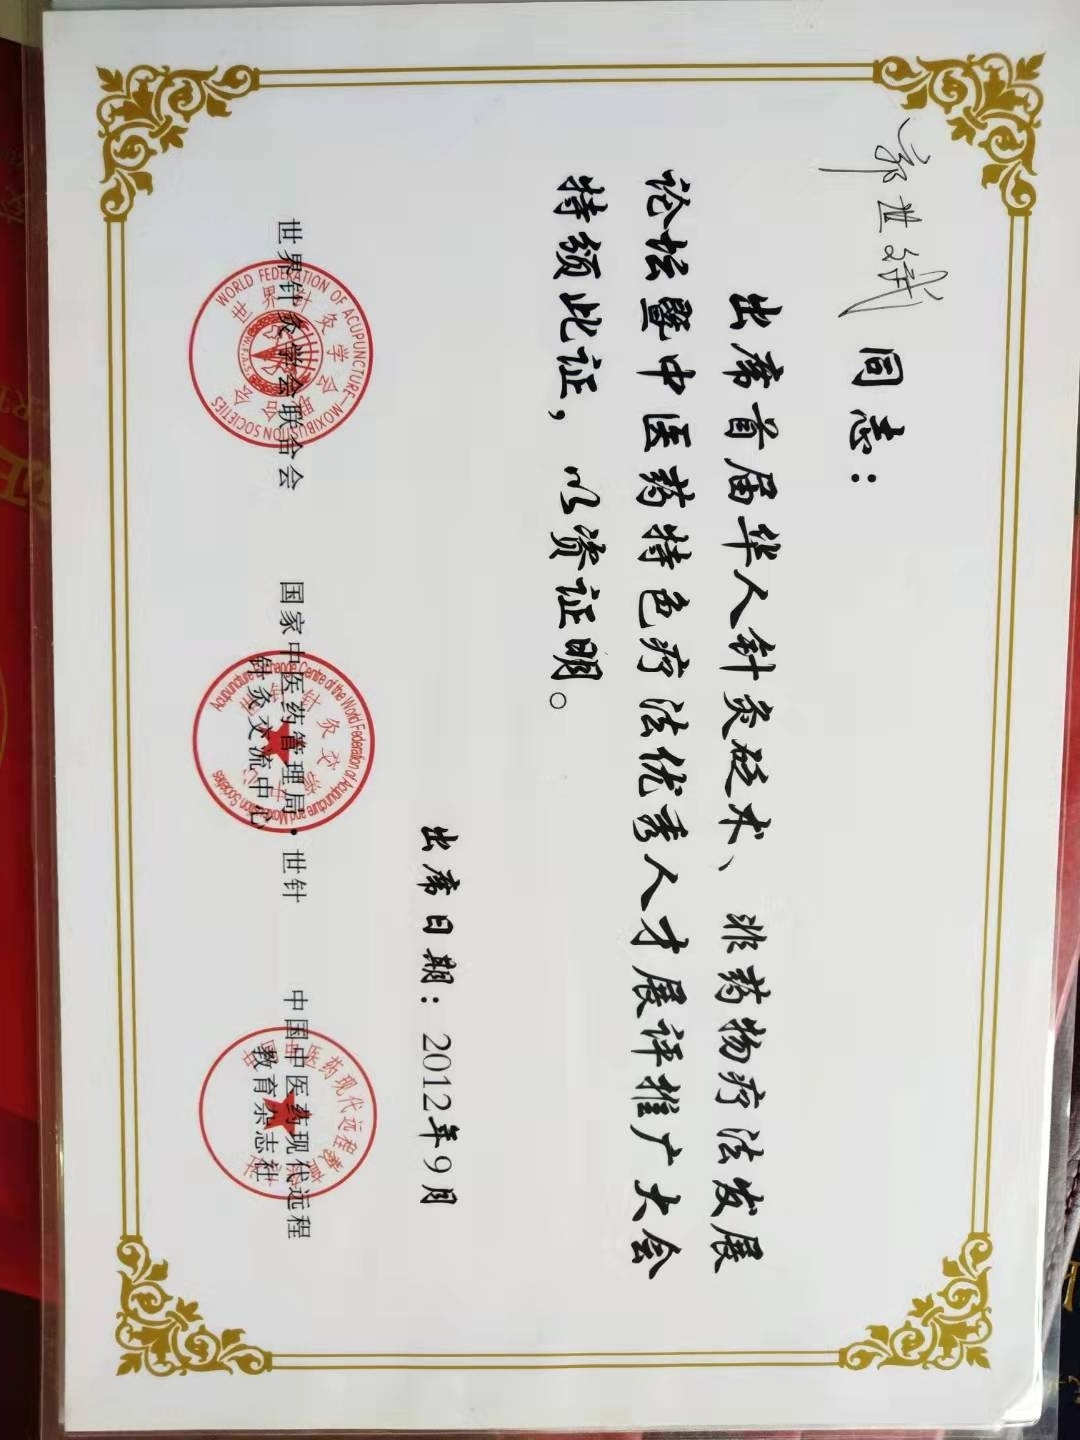 郭世斌 同志：
出席首届华人针灸砭术、非药物疗法发展
论坛暨中医药特色疗法优秀人才展评推广大会
特颁此证，以资证明。
出席日期：2012年9月
世界针灸学会联合会
国家中医药管理局·世针
针灸交流中心
中国中医药现代远程
教育杂志社
WORLD FEDERATION OF ACUPUNCTURE—MOXIBUSTION SOCIETIES
世界针灸学会联合会
W.F.A.S.
Acupuncture Exchange Centre of the World Federation of Acupuncture and Moxibustion Societies